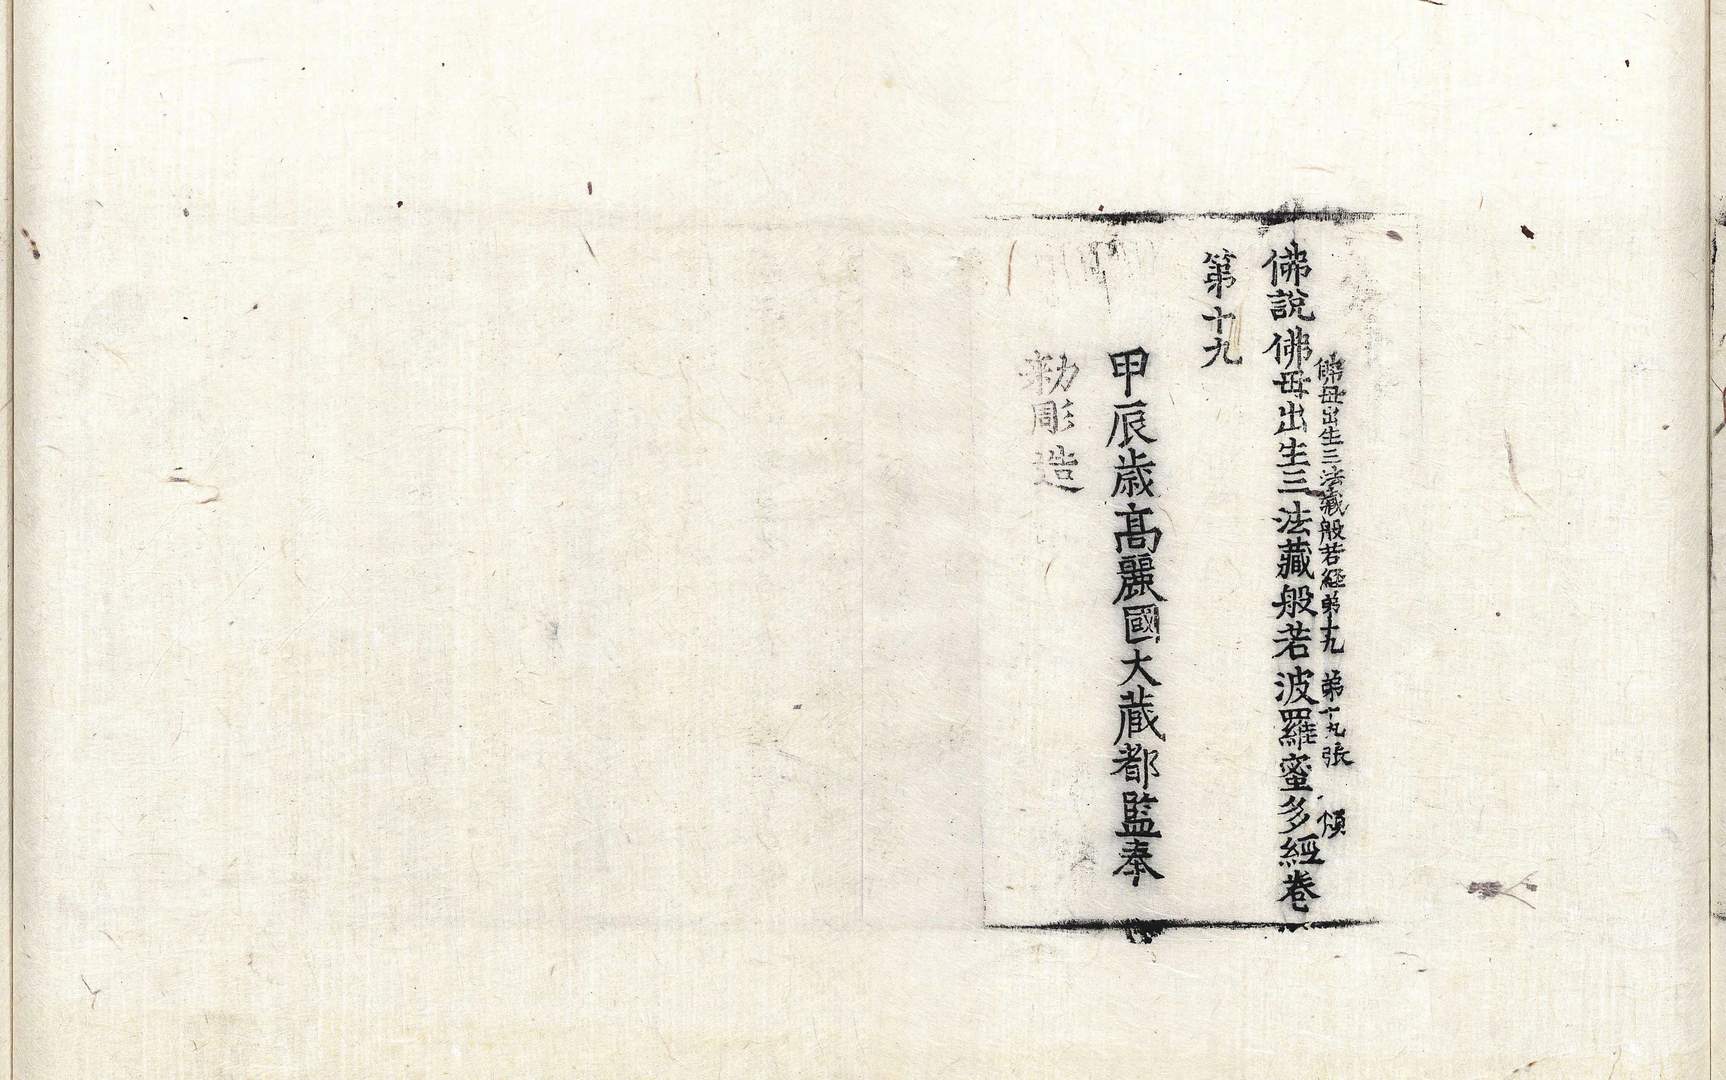 佛母出生三法藏般若經第十九 第十九張 煩
佛說佛母出生三法藏般若波羅蜜多經卷
第十九
甲辰歳高麗國大藏都監奉
勅彫造